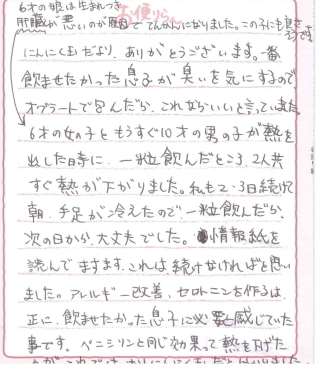 6才の娘は生まれつき
肝臓が悪いのが原因でてんかんになりました。この子にも良さ
そうです
お便り
にんにく玉だより、ありがとうございます。一番
飲ませたかった息子が臭いを気にするので
オブラートで包んだら、これならいいと言っていました。
6才の女の子ともうすぐ10才の男の子が熱を
出した時に、一粒飲んだところ、2人共
すぐ熱が下がりました。私も2・3日続けて
朝、手足が冷えたので、一粒飲んだら、
次の日から、大丈夫でした。情報紙を
読んでますます、これは続けなければと思い
ました。アレルギー改善、セロトニンを作るは、
正に、飲ませたかった息子に必要と感じていた
事です。ペニシリンと同じ効果って熱を下げた